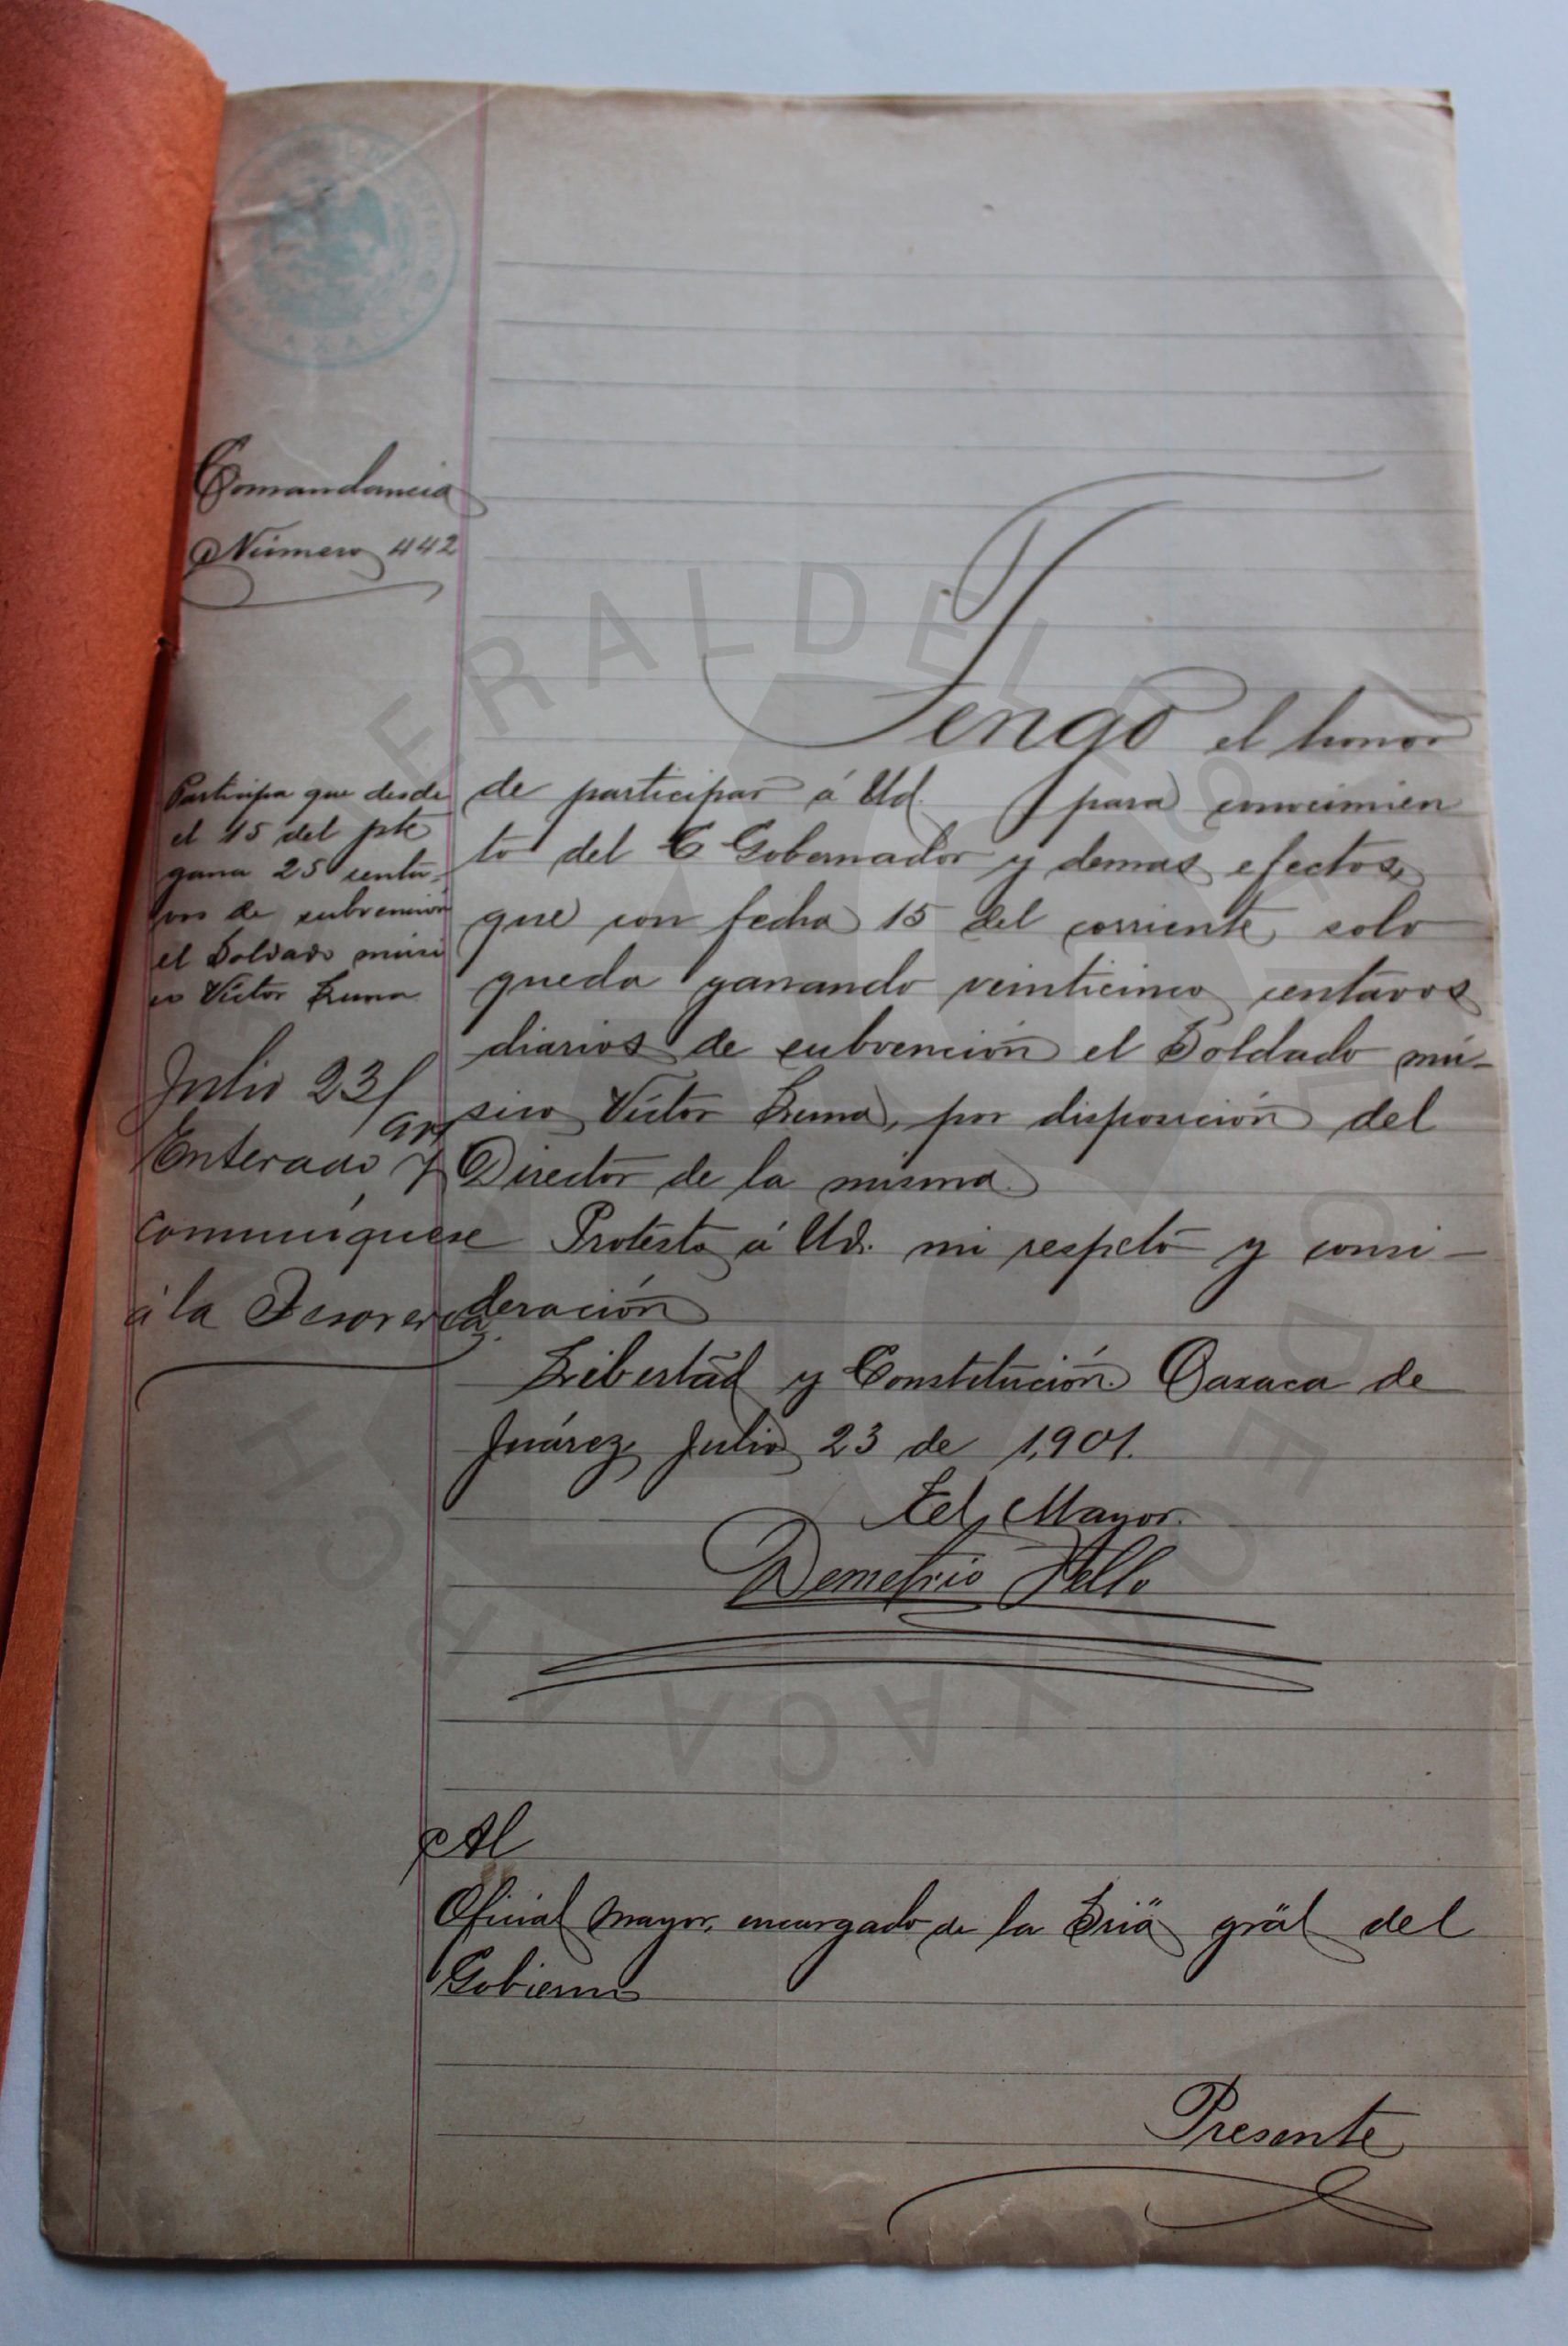 Comandancia
Número 442
Participa que desde
el 15 del pte
gana 25 centa-
vos de subvención
el Soldado músi
co Víctor Luna
Julio 23/
901
Enterado y
comuníquese
á la Tesorería.
Tengo el honor
de participar á Ud. para conocimien
to del C Gobernador y demas efectos,
que con fecha 15 del corriente, solo
queda ganando veinticinco centavos
diarios de subvención el Soldado mú-
sico Víctor Luna, por disposición del
Director de la misma.
Protesto á Ud. mi respeto y consi-
deración
Libertad y Constitución. Oaxaca de
Juárez, Julio 23 de 1,901.
El Mayor.
Demetrio Tello
Al
Oficial mayor, encargado de la Sriä gräl del
Gobierno
Presente